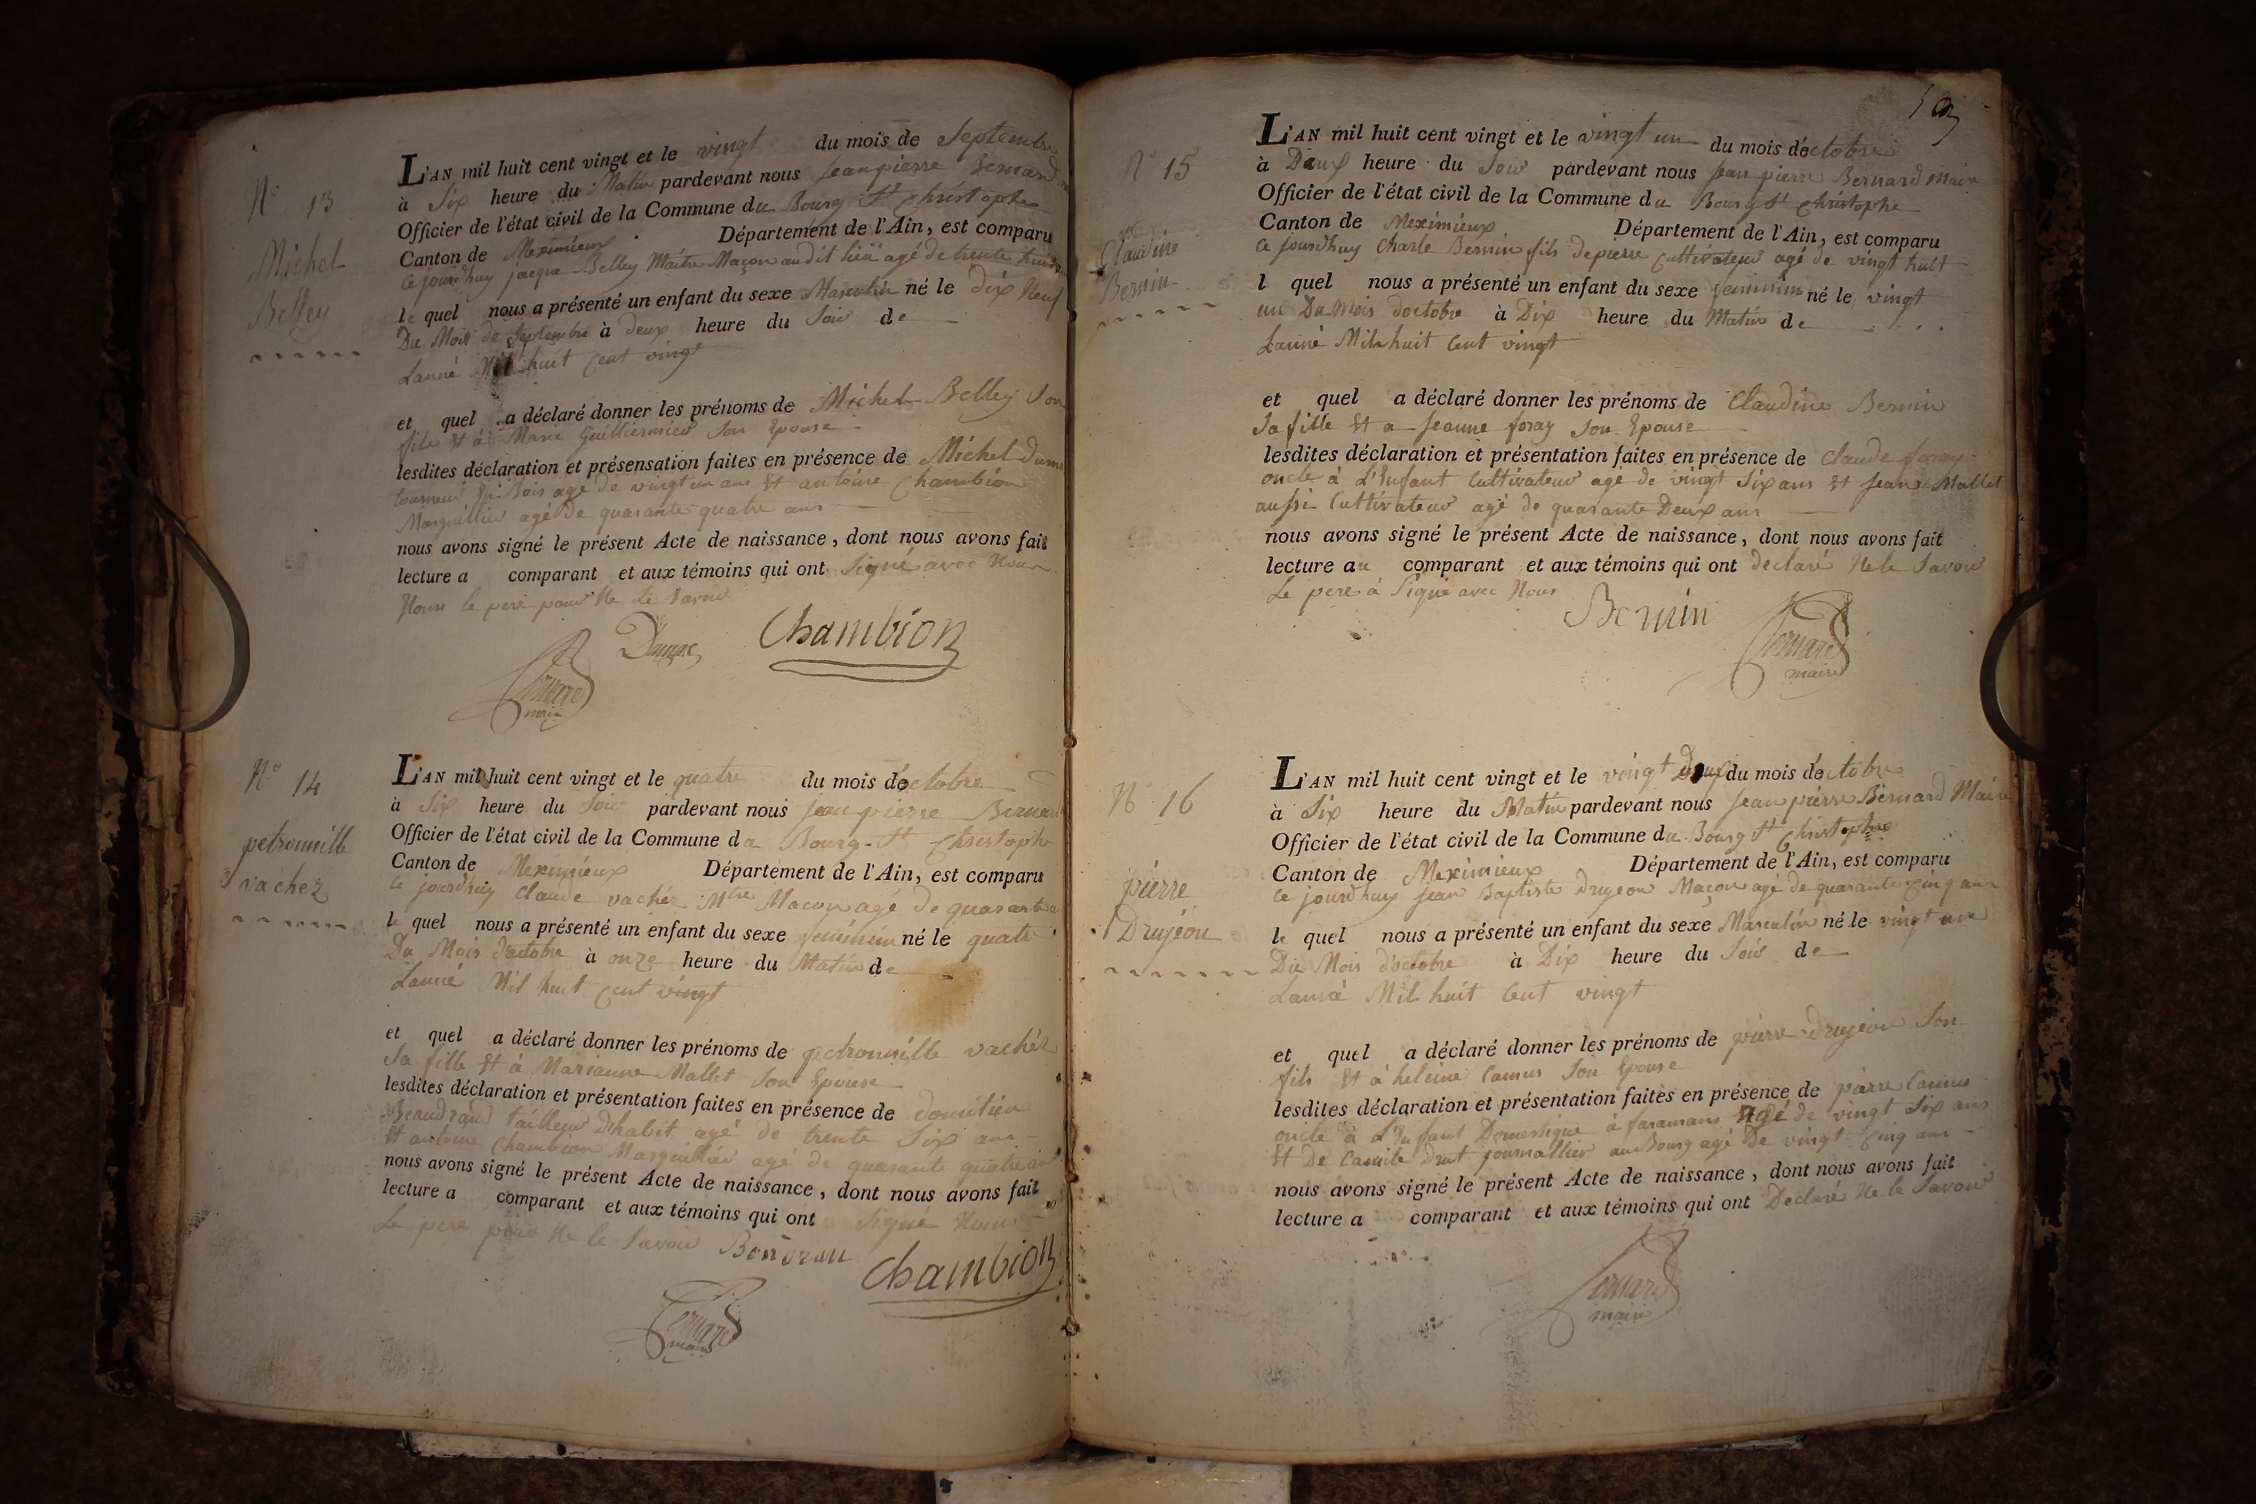 N° 13
Michel
Belley
L'AN mil huit cent vingt et le vingt du mois de Septembre
à Six heure du Matin pardevant nous Jean pierre Bernard
Officier de l'état civil de la Commune du Bourg St Christophe
Canton de Meximieux Département de l'Ain, est comparu
Ce jourdhuy jacque Belley Maitre Maçon audit lieu agé de trente huit
le quel nous a présenté un enfant du sexe Masculin né le dix Neuf
Du Mois de Septembre à deux heure du Soir de
Lanné Mil huit Cent vingt
et quel a déclaré donner les prénoms de Michel Belley Son
fils Et à Marie Guilliermier Son Epouse
lesdites déclaration et présensation faites en présence de Michel
tourneur En Bois agé de vingt un ans Et antoine Chambion
Marguillier agé De quarante quatre ans
nous avons signé le présent Acte de naissance, dont nous avons fait
lecture a comparant et aux témoins qui ont Signé avec Nous
Nous le pere pour Ne le Savoir
Chambion
Bernard
maire
N° 14
petronille
vachez
L'AN mil huit cent vingt et le quatre du mois doctobre
à Six heure du Soir pardevant nous Jean pierre Bernard
Officier de l'état civil de la Commune du Bourg St Christophe
Canton de Meximieux Département de l'Ain, est comparu
Ce jourdhuy Claude vachéz Mtre Macon agé de quarante
le quel nous a présenté un enfant du sexe feminin né le quatre
Du Mois d'octobre à onze heure du Matin de
Lanné Mil huit Cent vingt
et quel a déclaré donner les prénoms de petronille vachéz
Sa fille Et à Marianne Mallet Son Epouse
lesdites déclaration et présentation faites en présence de domitien
Beaudrand tailleur dhabit agé de trente Six ans
Et antoine Chambion Marguillier agé de quarante quatre ans
nous avons signé le présent Acte de naissance, dont nous avons fait
lecture a comparant et aux témoins qui ont Signé Nous
Le pere pour Ne le Savoir Bondran Chambion
Bernard
maire
N° 15
Claudine
Bernin
L'AN mil huit cent vingt et le vingt un du mois doctobre
à Deux heure du Soir pardevant nous Jean pierre Bernard Maire
Officier de l'état civil de la Commune du Bourg St Christophe
Canton de Meximieux Département de l'Ain, est comparu
Ce jourdhuy Charle Bernin fils de pierre Cultivateur agé de vingt huit
l quel nous a présenté un enfant du sexe feminin né le vingt
un Du Mois doctobre à Dix heure du Matin de
Lanné Mil huit Cent vingt
et quel a déclaré donner les prénoms de Claudine Bernin
Sa fille Et a Jeanne foray Son Epouse
lesdites déclaration et présentation faites en présence de Claude foray
oncle à L'Enfant Cultivateur agé de vingt Six ans Et Jean Mallet
aussi Cultivateur agé de quarante Deux ans
nous avons signé le présent Acte de naissance, dont nous avons fait
lecture au comparant et aux témoins qui ont declaré Ne le Savoir
Le pere à Signé avec Nous
Bernin
Bernard
maire
N° 16
pierre
Drujéon
L'AN mil huit cent vingt et le vingt Deux du mois doctobre
à Six heure du Matin pardevant nous Jean pierre Bernard Maire
Officier de l'état civil de la Commune du Bourg St Christophe
Canton de Meximieux Département de l'Ain, est comparu
Ce jourdhuy Jean Baptiste drujeon Maçon agé de quarante Cinq ans
le quel nous a présenté un enfant du sexe Masculin né le vingt une
Du Mois d'octobre à Dix heure du Soir de
Lanné Mil huit Cent vingt
et quel a déclaré donner les prénoms de pierre drujéon Son
fils Et à heleine Camus Son Epouse
lesdites déclaration et présentation faites en présence de pierre Camus
oncle à L'Enfant Domestique à faramans Agé de vingt Six ans
Et De Camile Drut journallier au Bourg agé De vingt Cinq ans
nous avons signé le présent Acte de naissance, dont nous avons fait
lecture a comparant et aux témoins qui ont Declaré Ne le Savoir
Bernard
maire